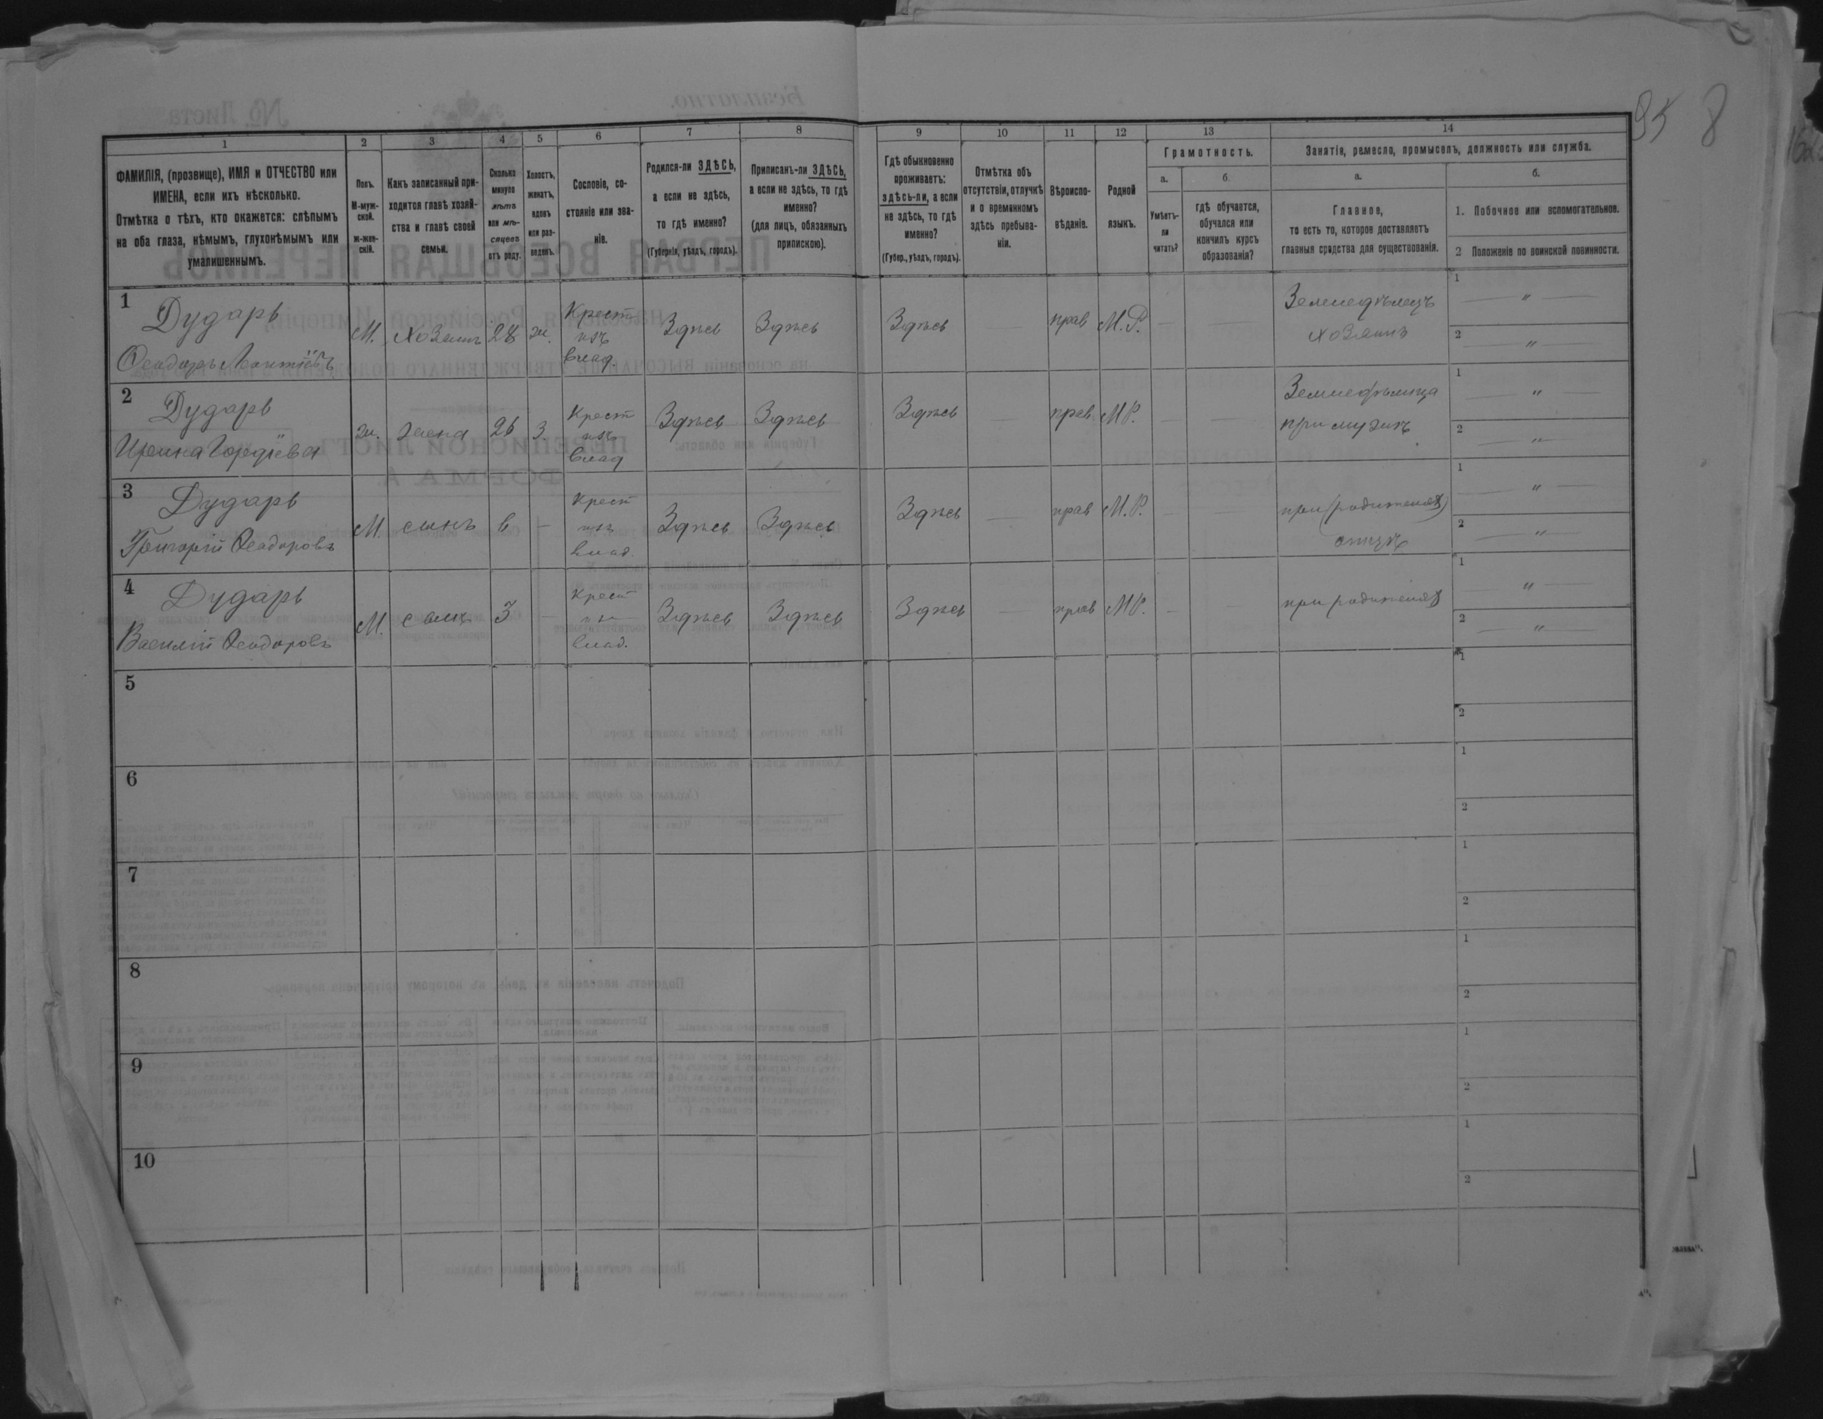 95 8
1 2 3 4 5 6 7 8 9 10 11 12 13 14
ФАМИЛІЯ, (прозвище), ИМЯ и ОТЧЕСТВО или
ИМЕНА, если ихъ нѣсколько.
Отмѣтка о тѣхъ, кто окажется: слѣпымъ
на оба глаза, нѣмымъ, глухонѣмымъ или
умалишеннымъ.
Полъ.
М-муж-
ской.
ж-жен-
скій.
Какъ записанный при-
ходится главѣ хозяй-
ства и главѣ своей
семьи.
Сколько
минуло
лѣтъ
или мѣ-
сяцевъ
отъ роду.
Холостъ,
женатъ,
вдовъ
или раз-
веденъ.
Сословіе, со-
стояніе или зва-
ніе.
Родился-ли ЗДѢСЬ,
а если не здѣсь,
то гдѣ именно?
(Губернія, уѣздъ, городъ).
Приписанъ-ли ЗДѢСЬ,
а если не здѣсь, то гдѣ
именно?
(для лицъ, обязанныхъ
припискою).
Гдѣ обыкновенно
проживаетъ:
здѣсь-ли, а если
не здѣсь, то гдѣ
именно?
(Губер., уѣздъ, городъ).
Отмѣтка объ
отсутствіи, отлучкѣ
и о временномъ
здѣсь пребыва-
ніи.
Вѣроиспо-
вѣданіе.
Родной
языкъ.
Грамотность.
а.
Умѣетъ-
ли
читать?
б.
гдѣ обучается,
обучался или
кончилъ курсъ
образованія?
Занятія, ремесло, промыселъ, должность или служба.
а.
Главное,
то есть то, которое доставляетъ
главныя средства для существованія.
б.
1. Побочное или вспомогательное.
2 Положеніе по воинской повинности.
1 Дударь
Ѳеодоръ
М. хозяинъ 28 ж.
Крест
изъ
влад.
Здѣсь Здѣсь Здѣсь — прав М.Р. — —
Земледѣлецъ
хозяинъ
1 — „ —
2 — „ —
2 Дударь
ж. жена 26 З.
Крест
изъ
влад
Здѣсь Здѣсь Здѣсь — прав М.Р. — —
при мужѣ
1 — „ —
2 — „ —
3 Дударь
Григорій Ѳеодоровъ
М. сынъ 6 —
Крест
изъ
влад.
Здѣсь Здѣсь Здѣсь — прав М.Р. — —
при (родителяхъ)
отцѣ
1 — „ —
2 — „ —
4 Дударь
Василій Ѳеодоровъ
М. сынъ 3 —
Крест
изъ
влад.
Здѣсь Здѣсь Здѣсь — прав М.Р. — —
при родителяхъ
1 — „ —
2 — „ —
5
1
2
6
1
2
7
1
2
8
1
2
9
1
2
10
1
2